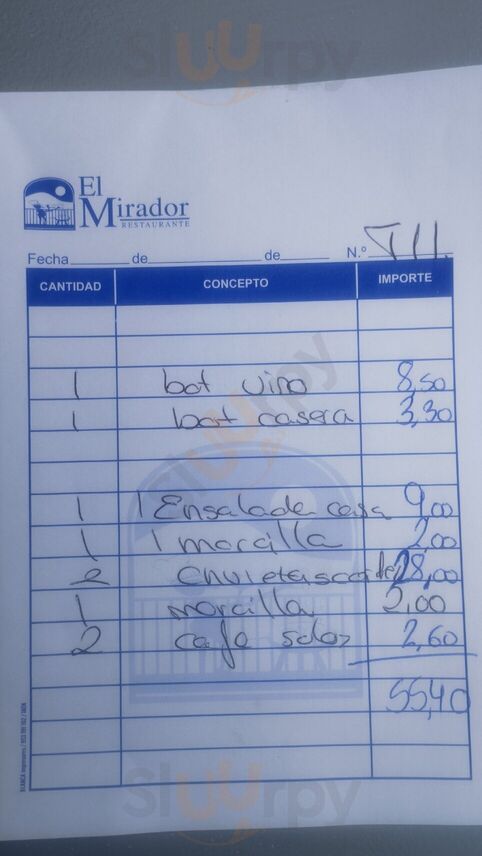 Sluurpy
El
Mirador
RESTAURANTE
Fecha de de N.º T11.
CANTIDAD CONCEPTO IMPORTE
1 bot vino 8,50
1 bot casera 3,30
Sluurpy
1 1 Ensalada casa 9,00
1 1 morcilla 2,00
2 chuletas 28,00
1 morcilla 2,00
2 cafe solos 2,60
55,40
Sluurpy